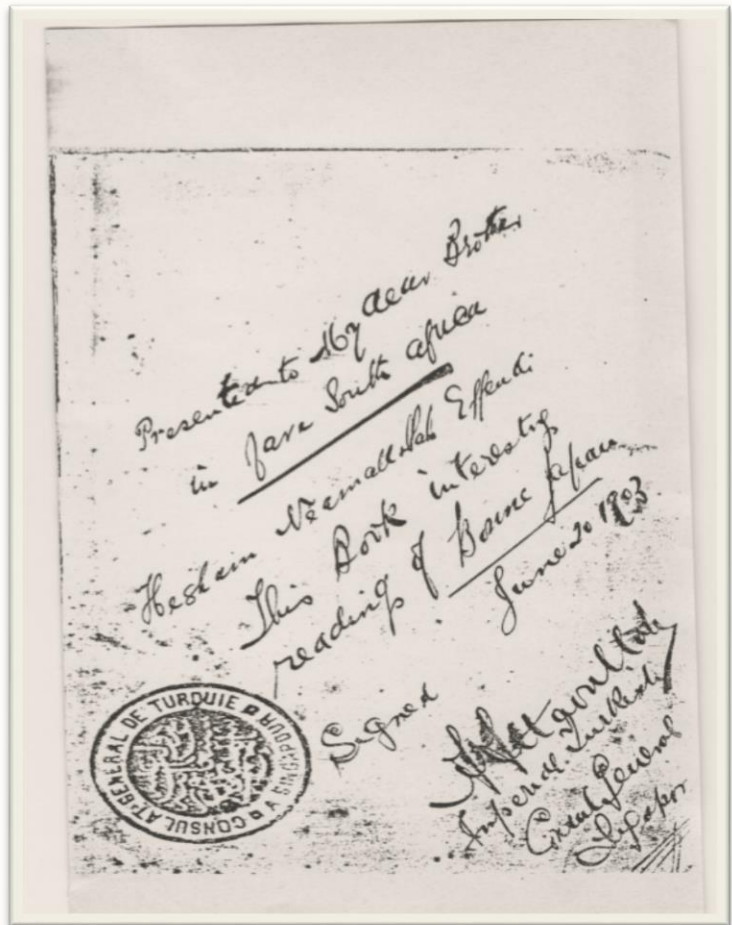 Presented to My dear Brother
in Java South Africa
Hesham Neamatollah Effendi
This Book interesting
reading of Japan
June 20 1903
Signed
Imperial Turkish
Consul General
CONSULAT GENERAL DE TURQUIE A SINGAPOUR